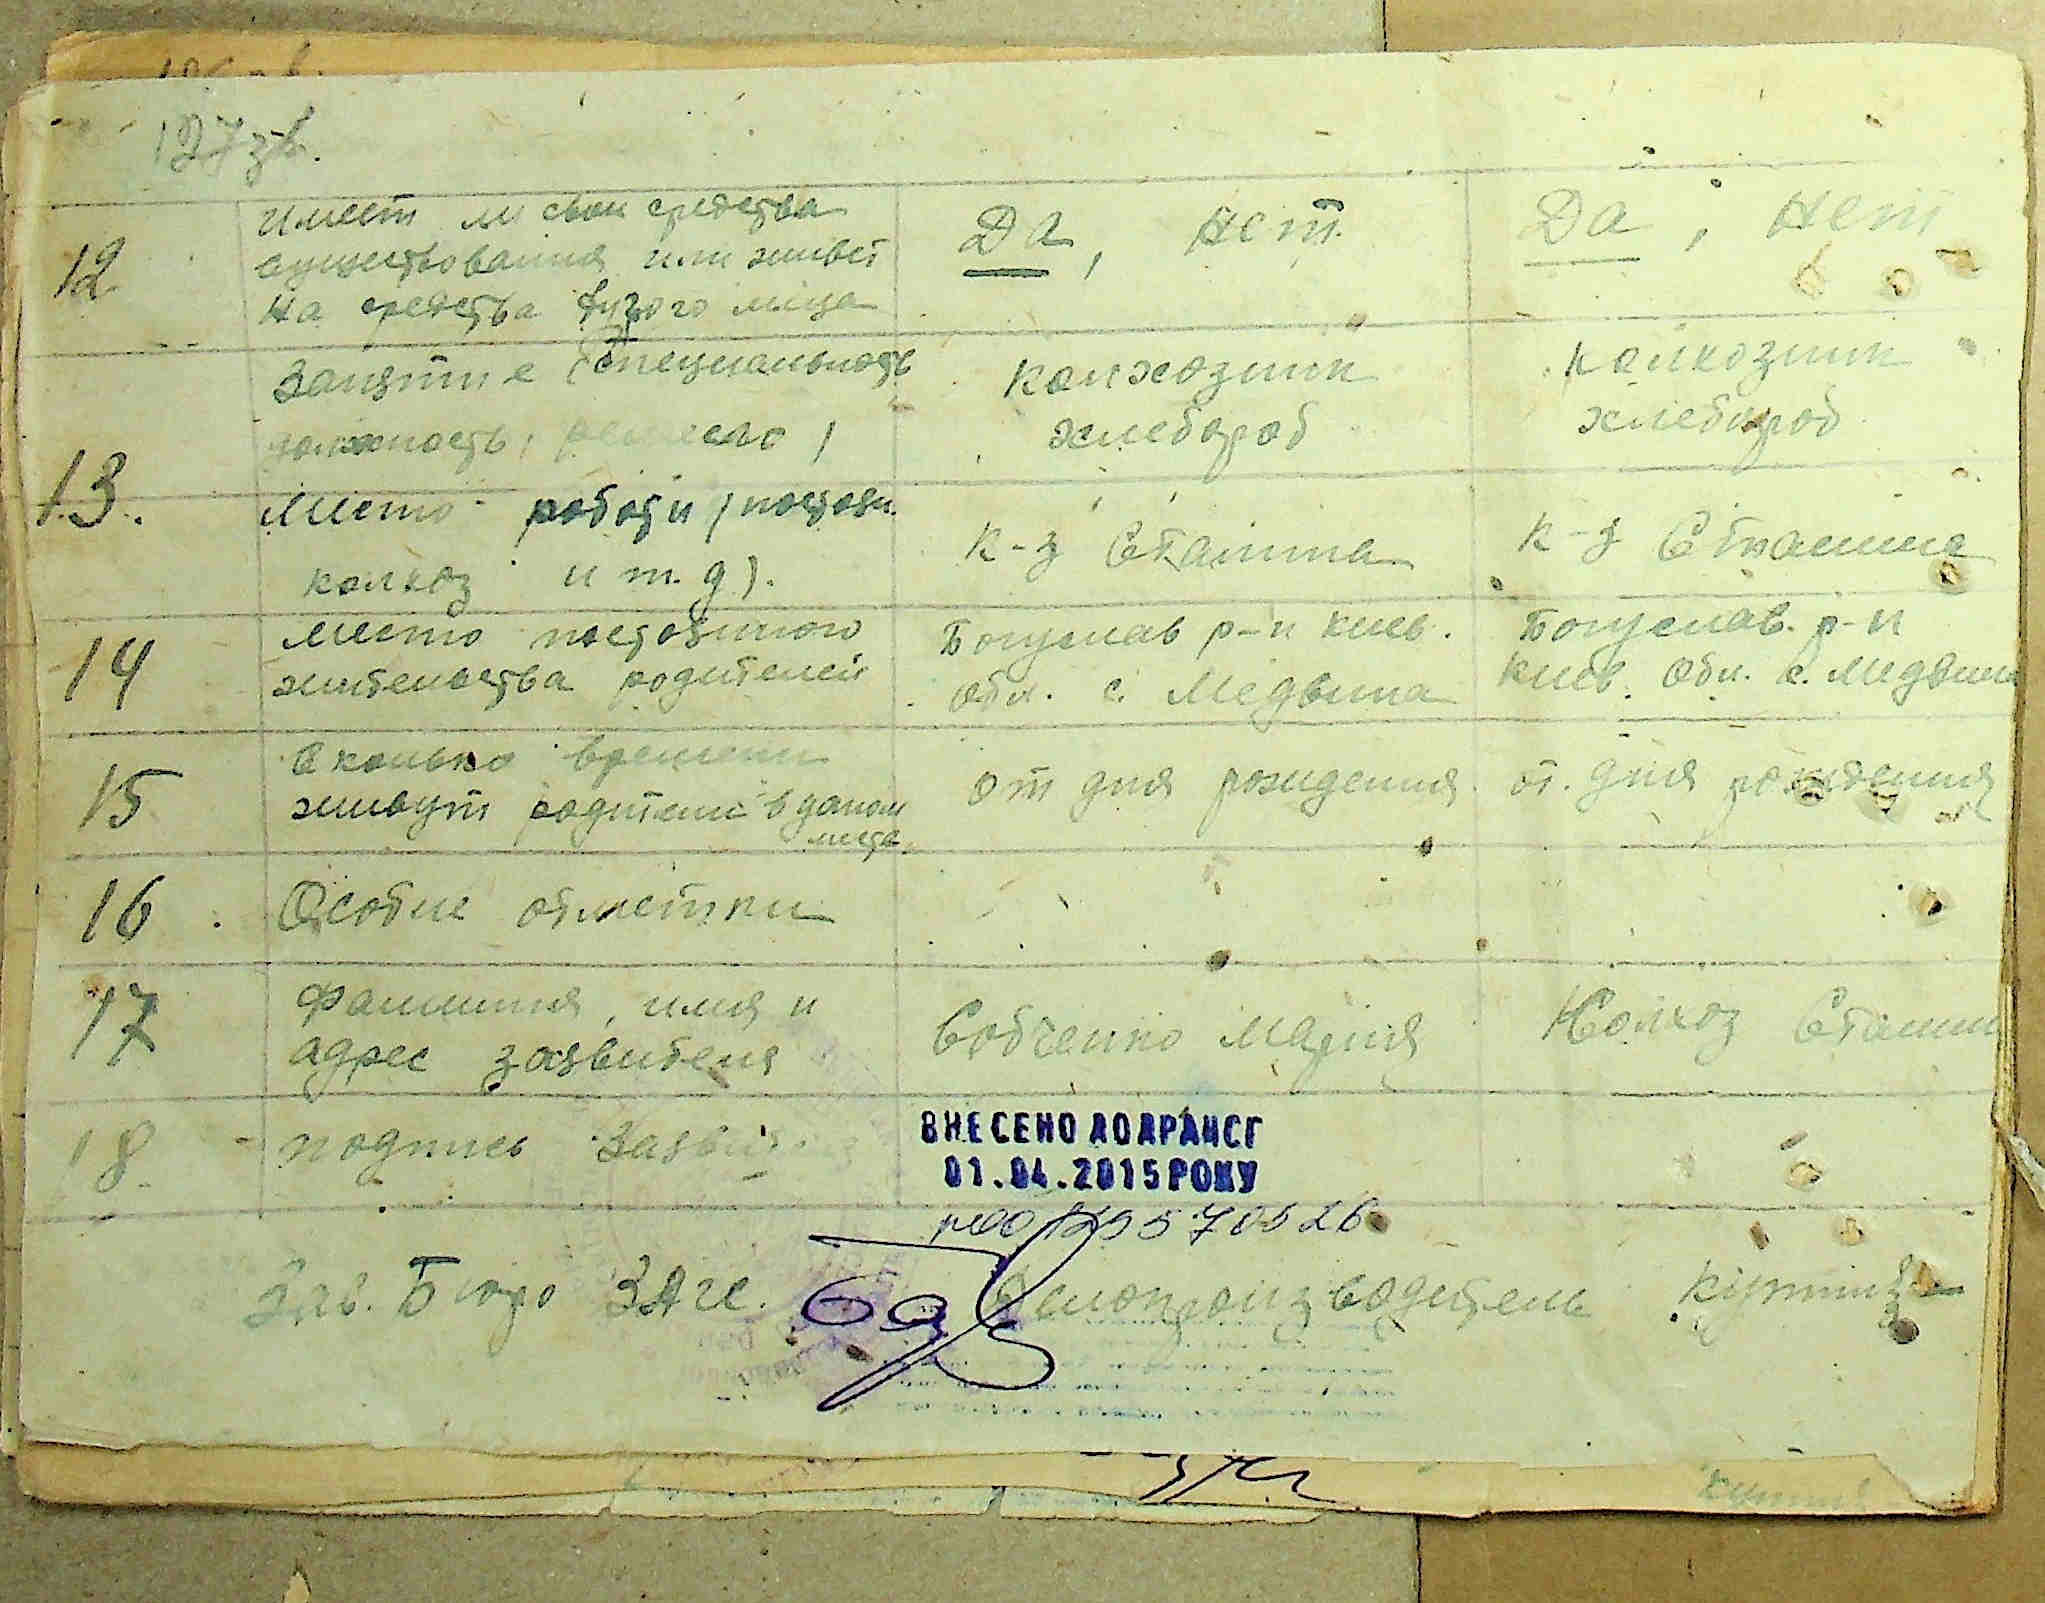 127 зв.
12 Имеет ли свои средства
существования или живет
на средства другого лица
Да, нет.
Да, нет
13. Занятие (специальность
должность, ремесло)
колхозник
хлебороб
колхозник
хлебороб
Место работи (постоян.
колхоз и т. д).
к-з Сталина
к-з Сталина
14 Место постоянного
жительства родителей
Богуслав р-н Киев.
обл. с. Медвина
Богуслав. р-н
Киев. обл. с. Медвин
15 Сколько времени
живут родители в даном
месте.
от дня рождения
от. дня рождения
16 Особие отметки
17 Фамилия, имя и
адрес заявителя
Собченко Мария
Колхоз Сталин
18 подпись заяви
ВНЕСЕНО ДО ДРАЦСГ
01.04.2015 РОКУ
Зав. Бюро ЗАГС.
Делопроизводитель